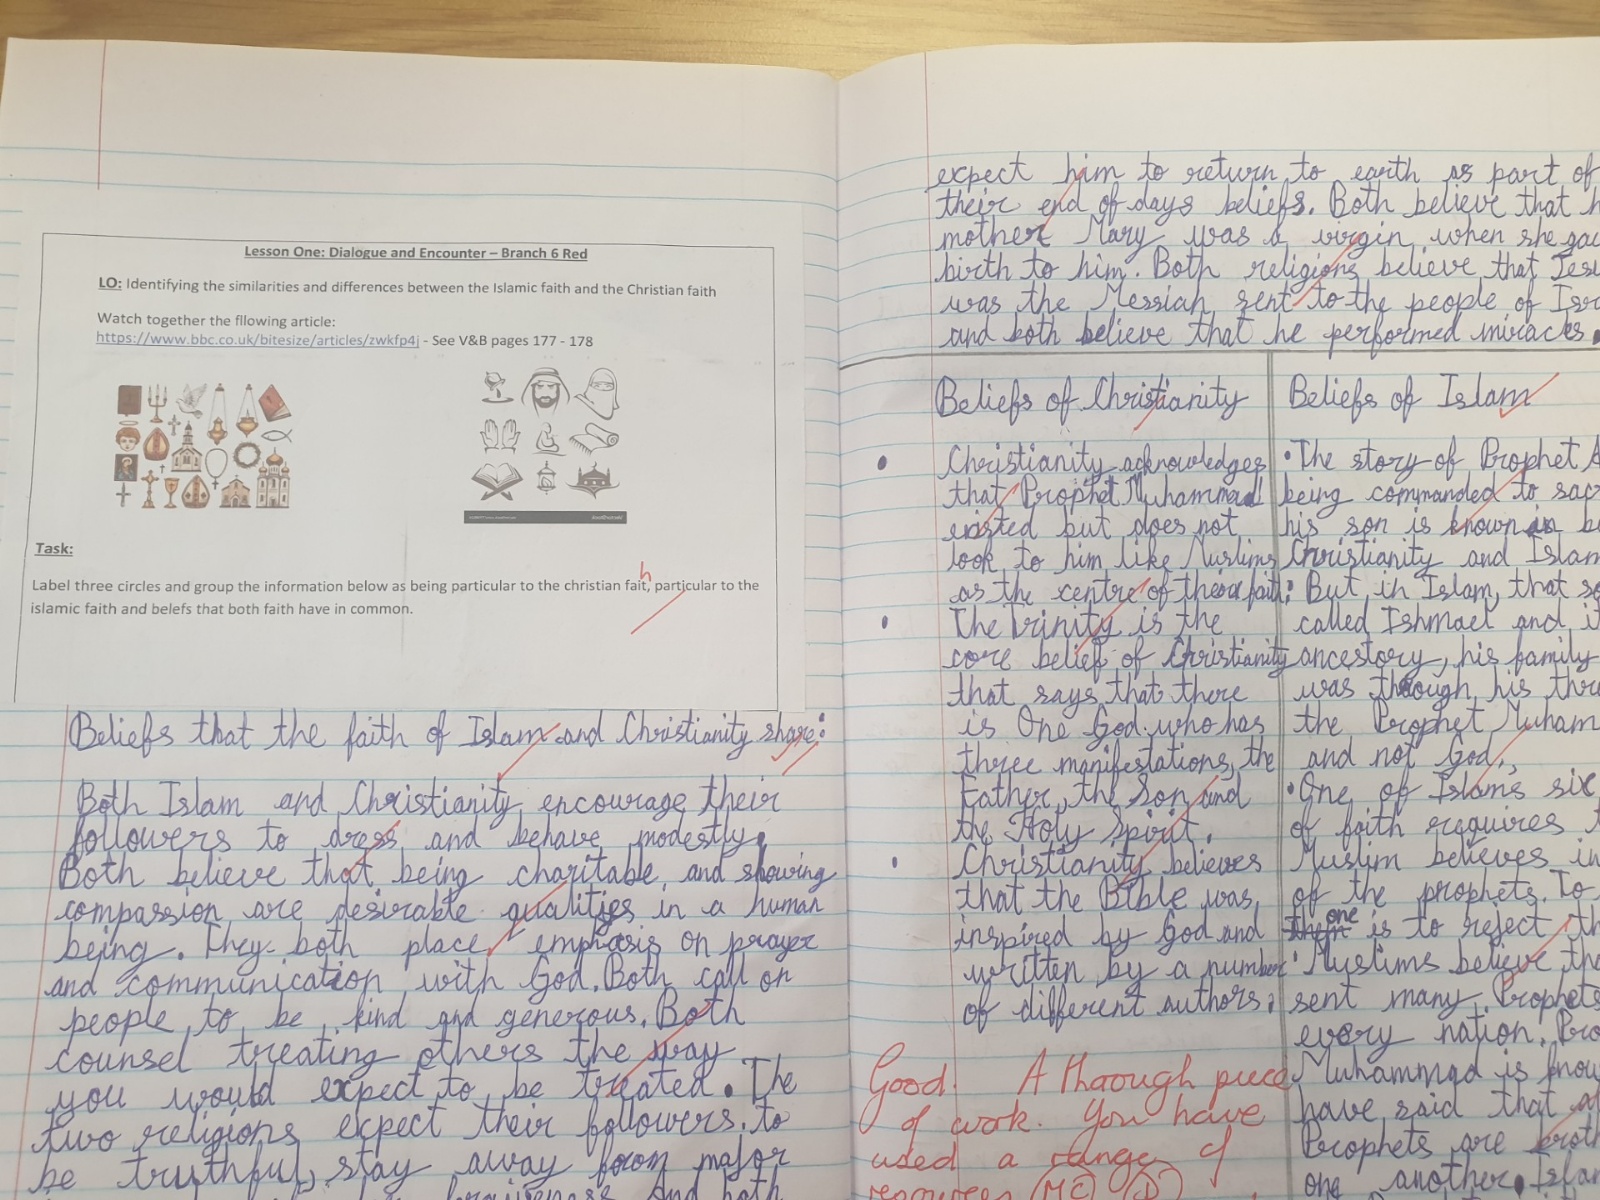 Lesson One: Dialogue and Encounter – Branch 6 Red
LO: Identifying the similarities and differences between the Islamic faith and the Christian faith
Watch together the fllowing article:
https://www.bbc.co.uk/bitesize/articles/zwkfp4j - See V&B pages 177 - 178
Task:
h
Label three circles and group the information below as being particular to the christian fait, particular to the
islamic faith and belefs that both faith have in common.
Beliefs that the faith of Islam and Christianity share:
Both Islam and Christianity encourage their
followers to dress and behave modestly.
Both believe that being charitable and showing
compassion are desirable qualities in a human
being. They both place emphasis on prayer
and communication with God. Both call on
people to be kind and generous. Both
counsel treating others the way
you would expect to be treated. The
two religions expect their followers to
be truthful, stay away from major
forgiveness And both
expect him to return to earth as part of
their end of days beliefs. Both believe that
mother Mary was a virgin when she
birth to him. Both religions believe that
was the Messiah sent to the people of
and both believe that he performed miracles.
Beliefs of Christianity
• Christianity acknowledges
that Prophet Muhammad
existed but does not
look to him like Muslims
as the centre of their fait.
• The trinity is the
core belief of Christianity
that says that there
is One God who has
three manifestations, the
Father, the Son and
the Holy Spirit.
• Christianity believes
that the Bible was
inspired by God and
written by a number
of different authors.
Good. A through piece
of work. You have
used a range of
resources (MC)
Beliefs of Islam
• The story of Prophet
being commanded to
his son is known in
Christianity and Islam
But in Islam, that
called Ishmael and
ancestory, his family
was through his
the Prophet
and not God.
• One of Islam's six
of faith requires
Muslim believes in
of the prophets. To
one is to reject
• Muslims believe
sent many Prophets
every nation.
Muhammad is
have said that
Prophets are
one another.